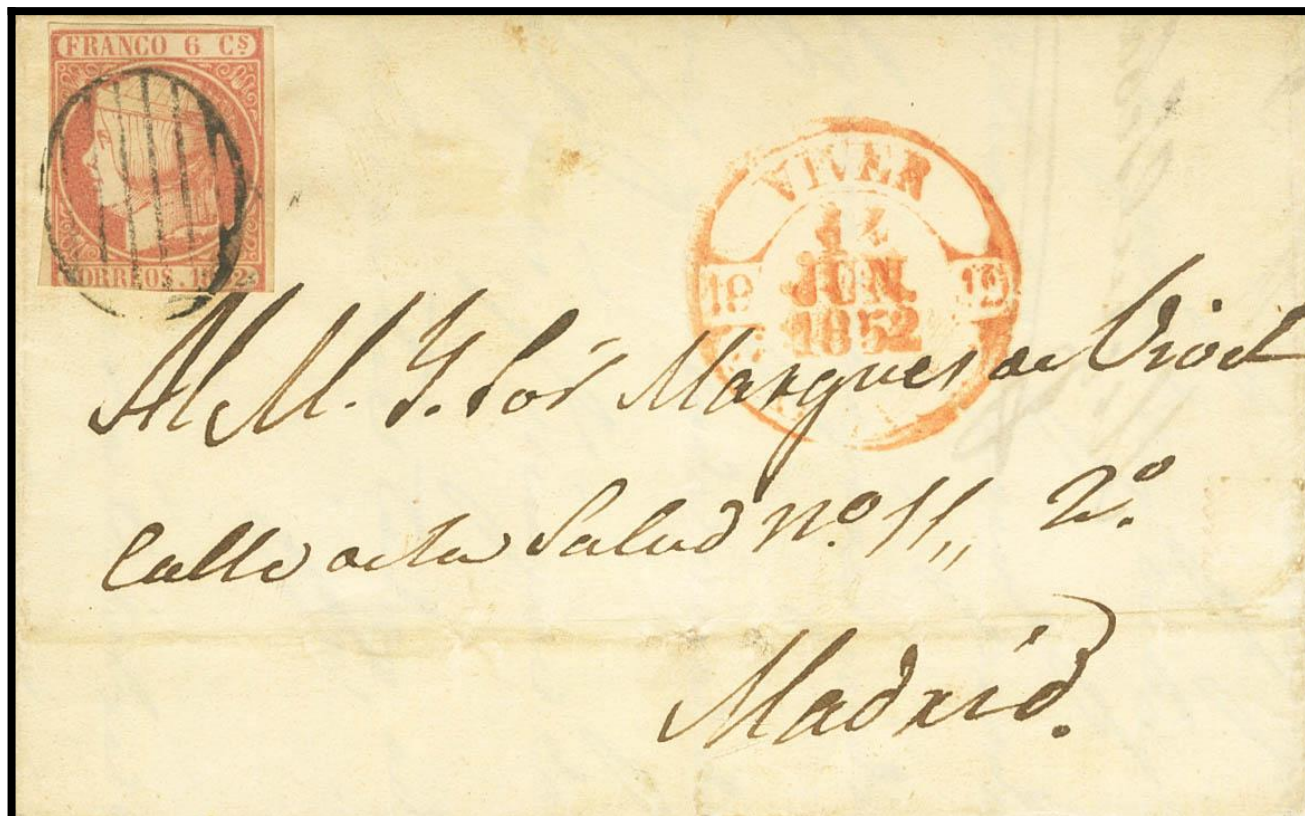 FRANCO 6 Cs
CORREOS. 1852
VIVER
14
JUN.
1852
19
Al M. Y. Sor Marques de
Calle de la Salud nº. 11,, 2º.
Madrid.